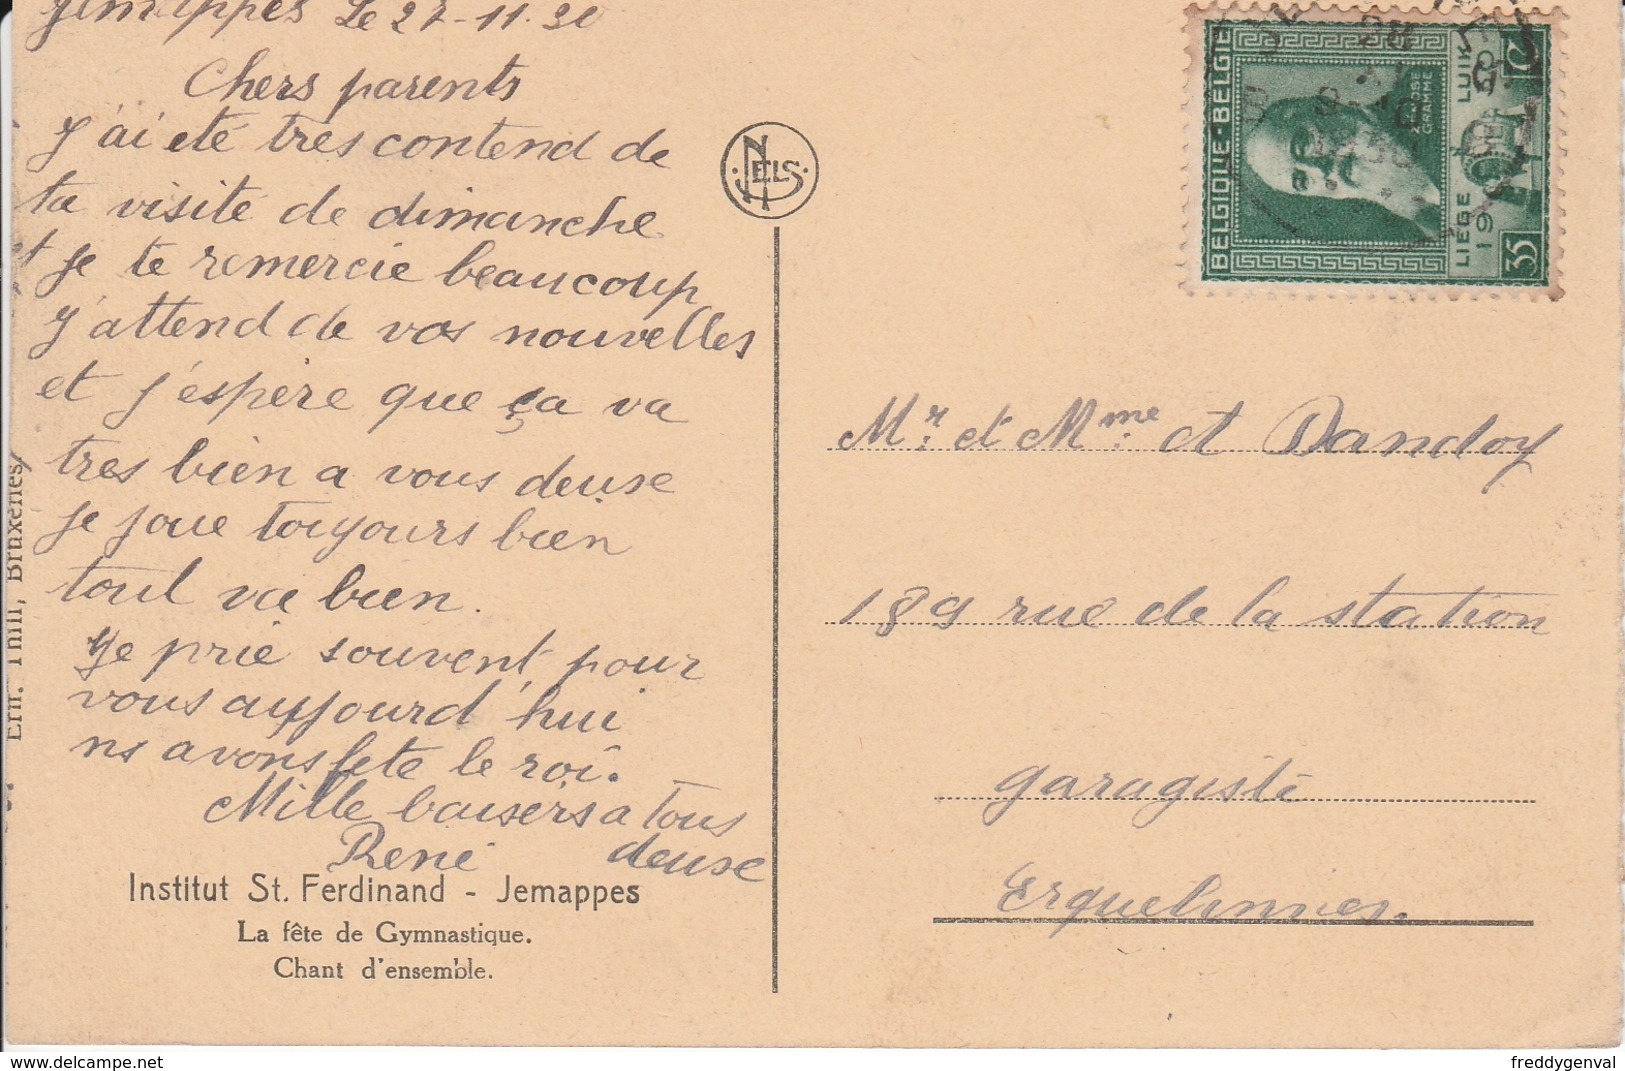 Jemappes Le 27-11.30
Chers parents
J'ai eté tres contend de
ta visité de dimanche
et je te remercie beaucoup
J'attend de vos nouvelles
et j'espère que ça va
tres bien a vous deuse
Je joue toujours bien
tout va bien.
Je prie souvent pour
vous aujourd'hui
ns avons fete le roi.
Mille baisers a tous
deuse
René
Institut St. Ferdinand - Jemappes
La fête de Gymnastique.
Chant d'ensemble.
Ern. Thill, Bruxelles
NELS
BELGIQUE-BELGIE
ZENOBE
GRAMME
LIEGE LUIK
1930
35 C
Mr. et Mme. et Dandoy
189 rue de la station
garagiste
Erquelinnes.
www.delcampe.net
freddygenval